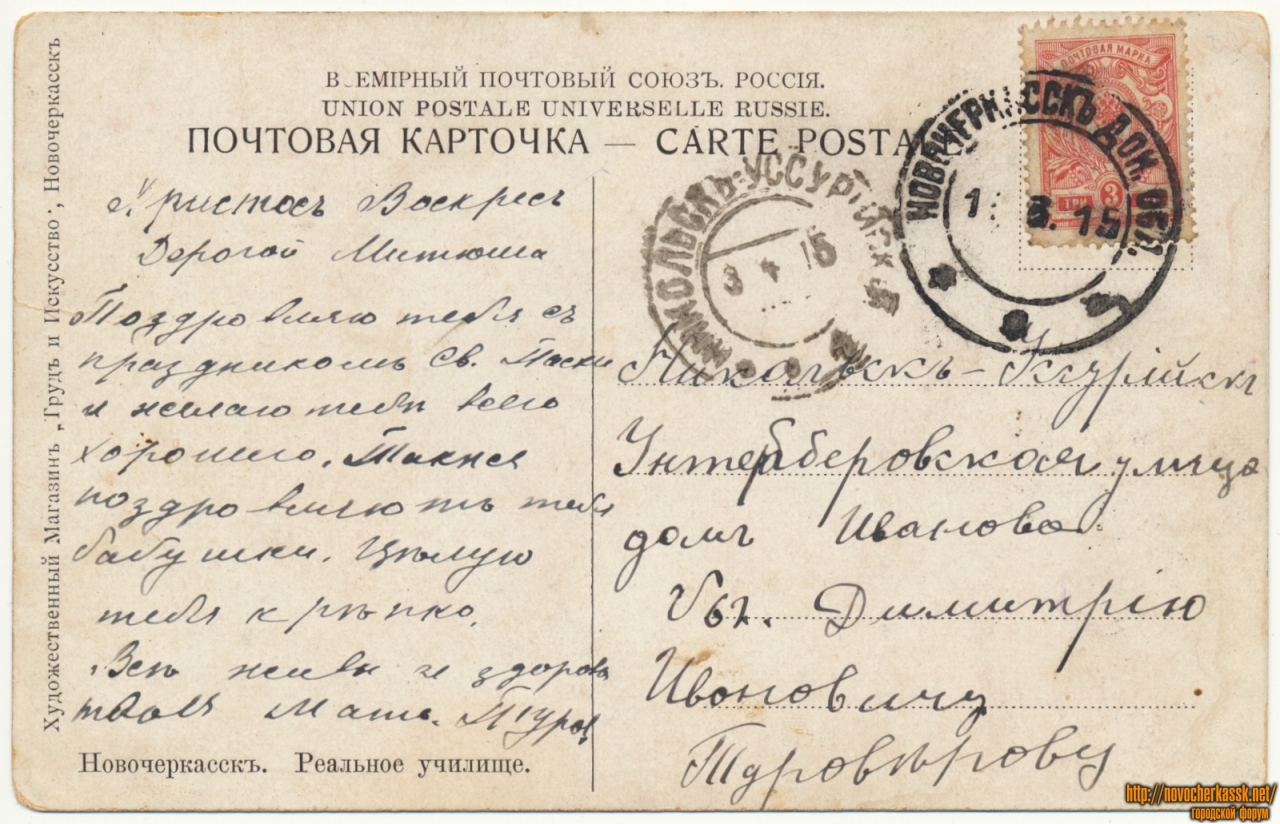 В ЕМІРНЫЙ ПОЧТОВЫЙ СОЮЗЪ. РОССІЯ.
UNION POSTALE UNIVERSELLE RUSSIE.
ПОЧТОВАЯ КАРТОЧКА — CARTE POSTA
ПОЧТОВАЯ МАРКА
ТРИ 3
НОВОЧЕРКАССКЪ ДОН. ОБЛ.
3. 15
НИКОЛЬСКЪ-УССУРІЙСК
3 4 15
Христосъ Воскресъ
Дорогой Митюша
Поздровляю тебя съ
праздникомъ Св. Пасхи
и желаю тебя всего
хорошего. Также
поздровляютъ тебя
бабушки. Цѣлую
тебя крѣпко.
Всѣ живы и здоровы
твоя Мать.
Никольскъ-Уссурійскъ
Унтербберовская улица
домъ Иванова
Димитрію
Ивановичу
Туровѣрову
Новочеркасскъ. Реальное училище.
Художественный Магазинъ „Трудъ и Искусство", Новочеркасскъ
http://novocherkassk.net/
городской форум